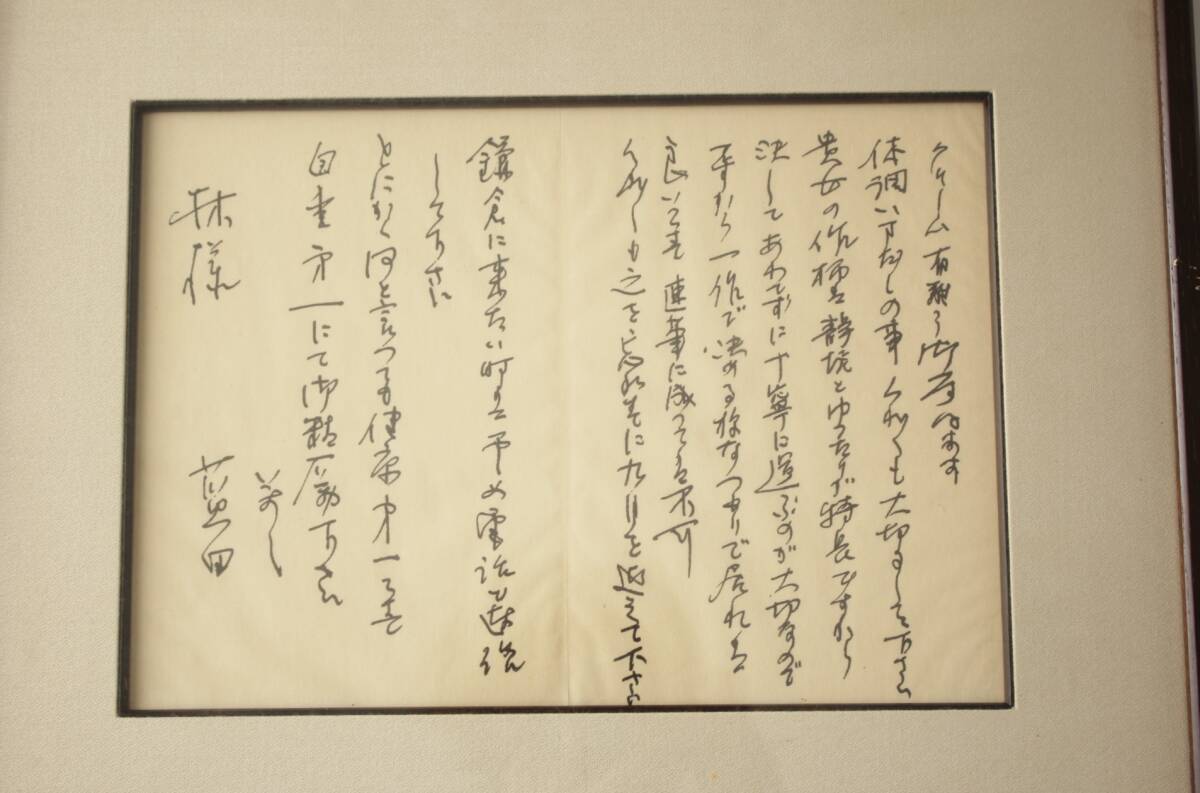 クリーム有難う御座います
体調いまだしの事くれぐも大切にして下さい
貴女の作柄は静境とゆたりが特長ですから
決してあわてずに丁寧に運ぶのが大切なので
すから一作で決める様なつもりで居れば
良いでせ 連筆に成っては不可
くれぐも之を忘れずに九月を迎えて下さい
鎌倉に来たい時は予め電話で連絡
して下さい
とにかく何と言っても健康第一です
自重第一にて御精励下さい
林様